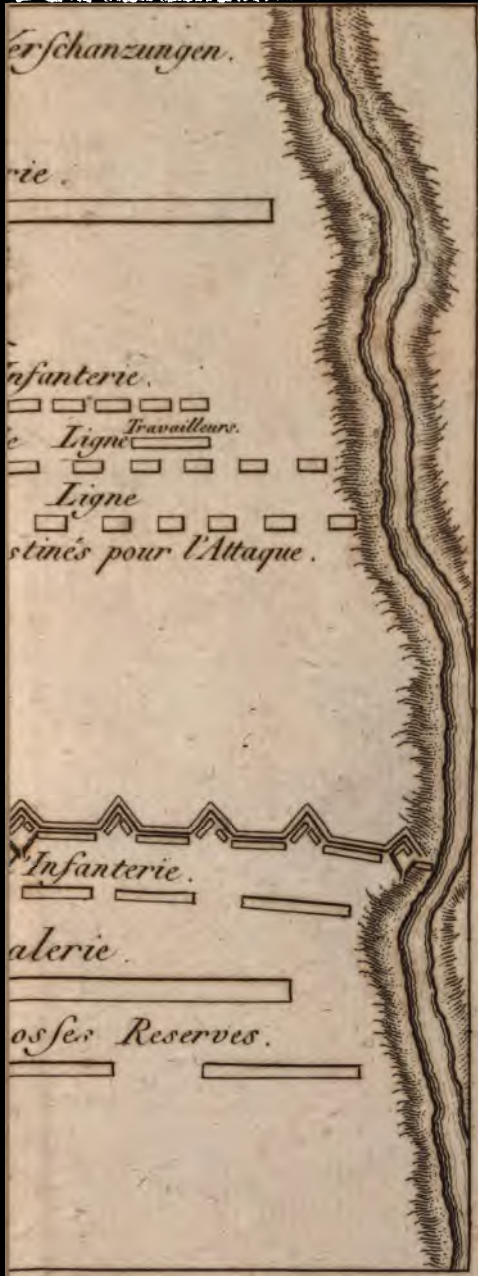 erschanzungen.
rie.
nfanterie.
e Ligne Travailleurs.
Ligne
stinés pour l'Attaque.
l'Infanterie.
alerie.
osses Reserves.